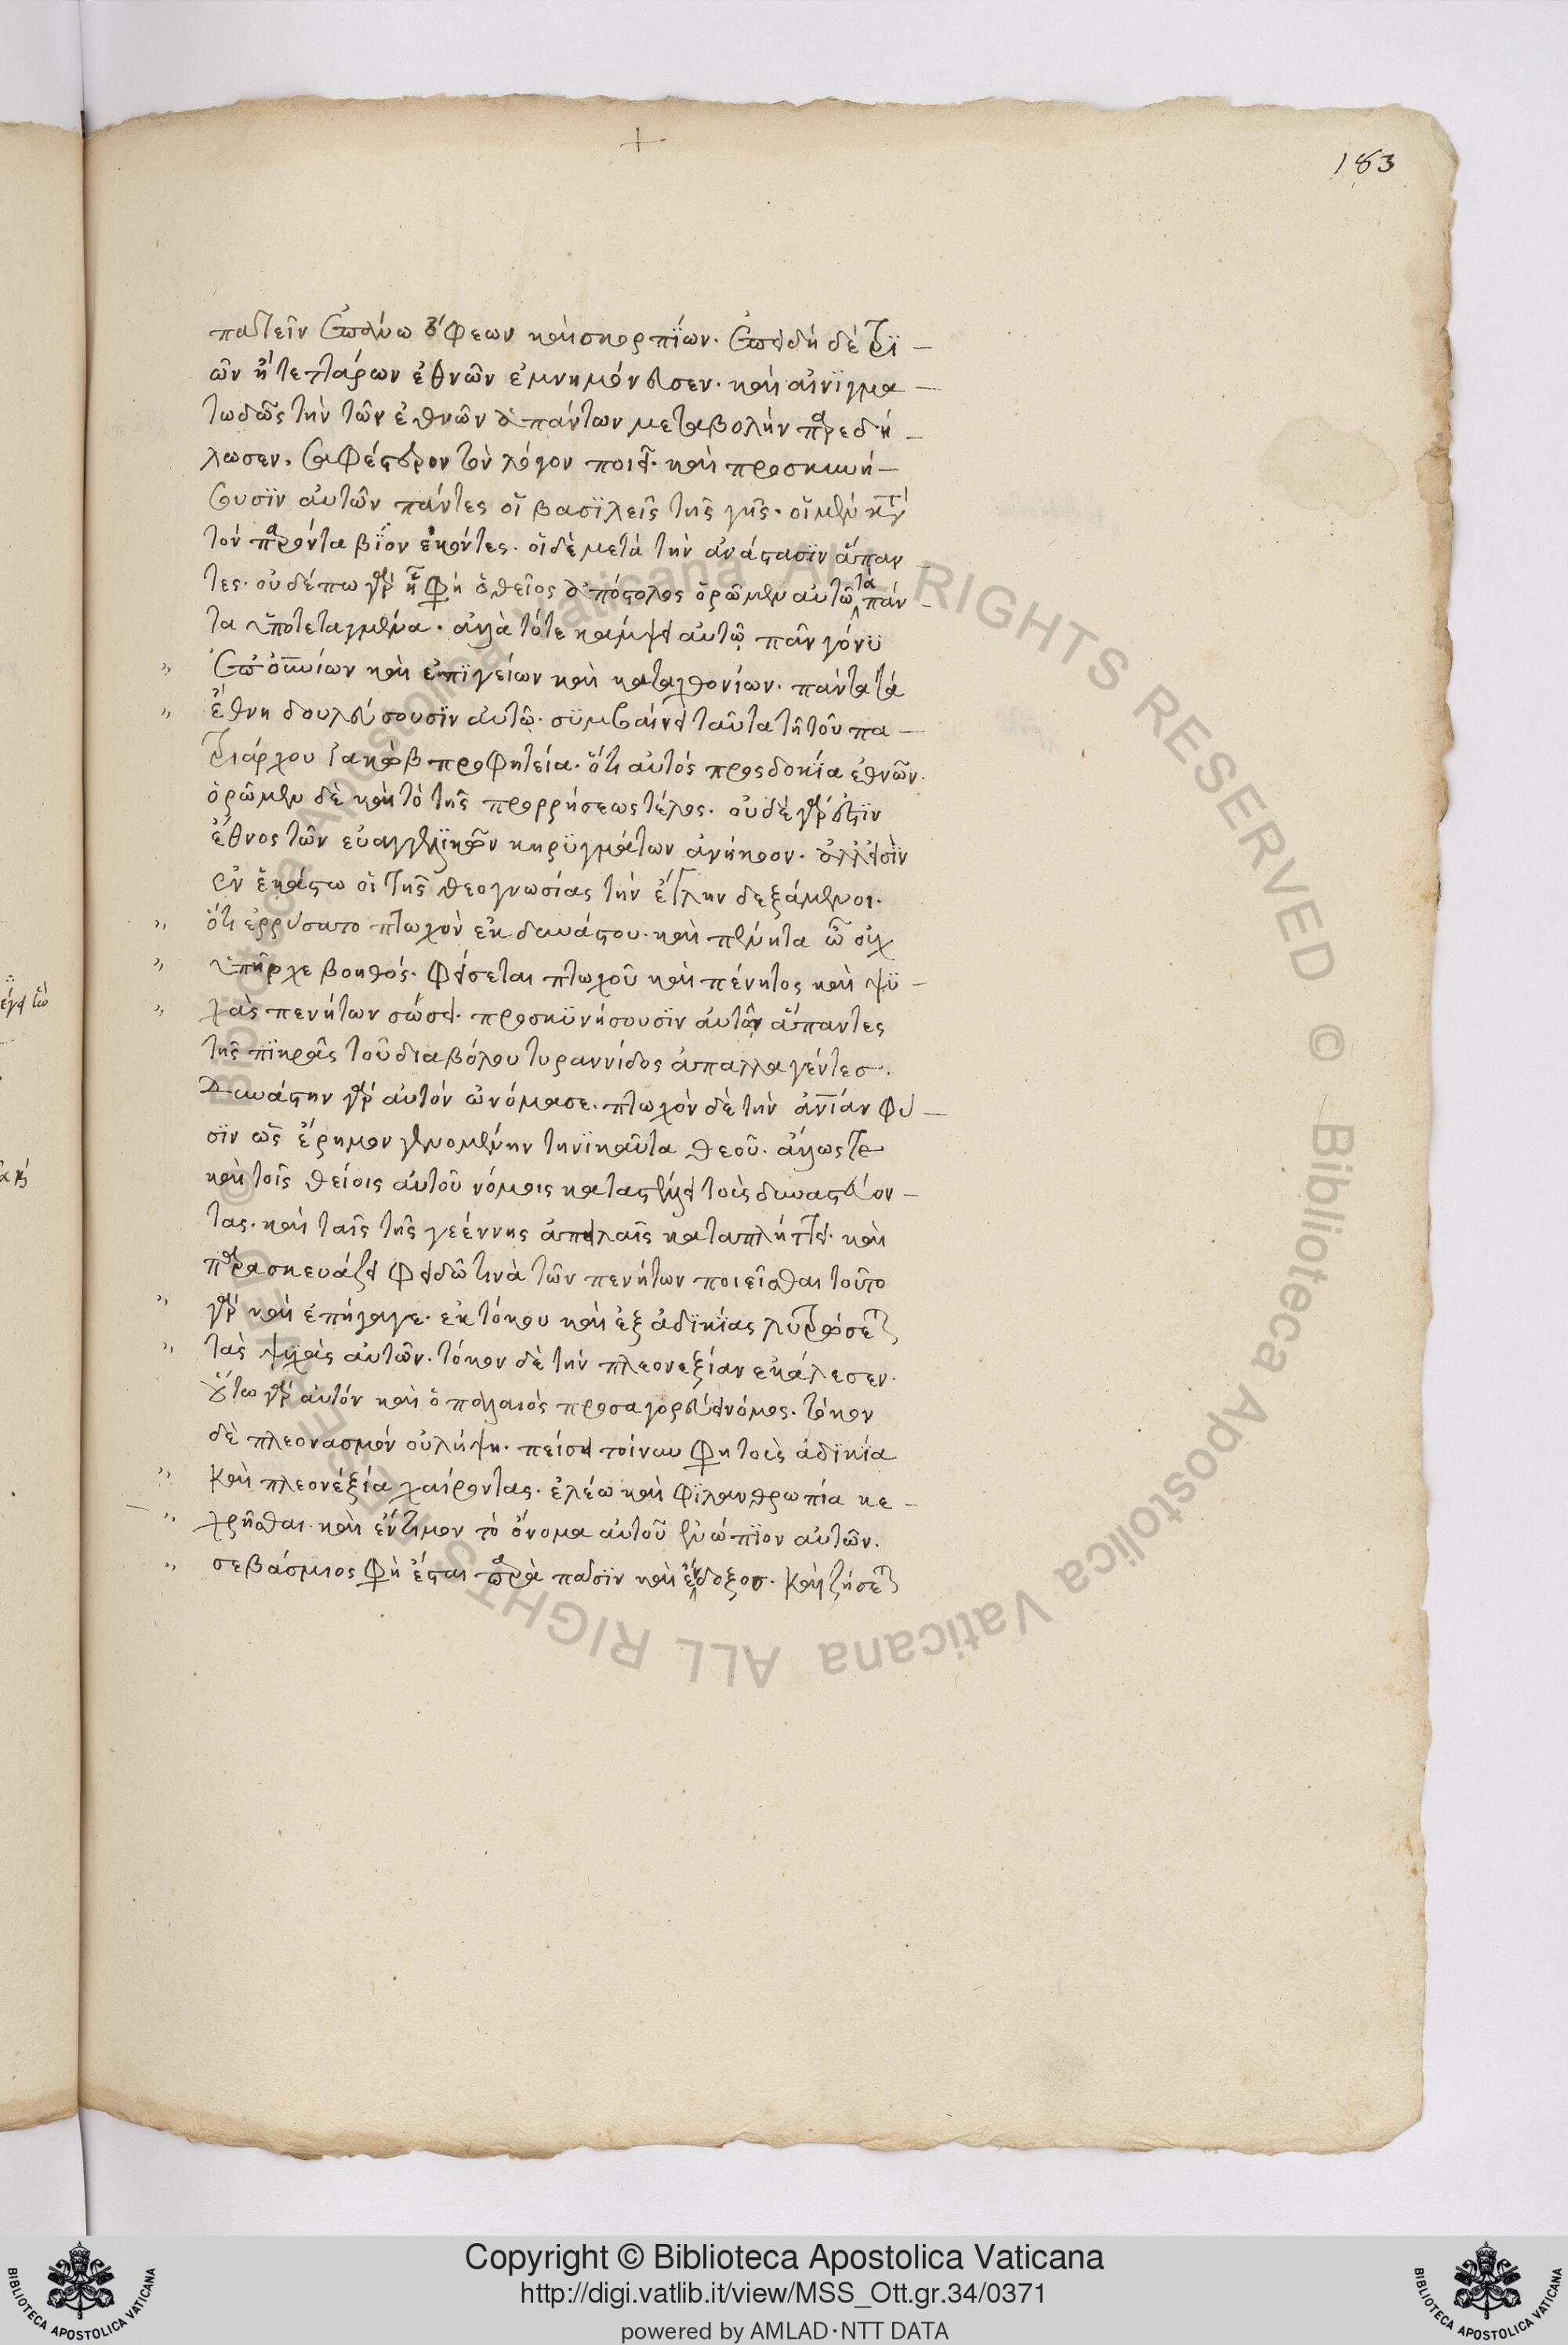 +
183
πατεῖν ἐπάνω ὄφεων καὶ σκορπίων. ἐπειδὴ δὲ τρι-
ῶν ἢ τεττάρων ἐθνῶν ἐμνημόνευσεν. καὶ αἰνιγμα-
τωδῶς τὴν τῶν ἐθνῶν ἁπάντων μεταβολὴν παρεδή-
λωσεν, σαφέστερον τὸν λόγον ποιεῖ. καὶ προσκυνή-
σουσιν αὐτῶν πάντες οἱ βασιλεῖς τῆς γῆς. οἱ μὲν κατὰ
τὸν παρόντα βίον ἑκόντες. οἱ δὲ μετὰ τὴν ἀνάστασιν ἅπαν
τες. οὐδέπω γὰρ φη ὁ θεῖος ἀπόστολος ὁρῶμεν αὐτῶ τὰ πάν-
τα ὑποτεταγμένα. ἀλλὰ τότε κάμψει αὐτῷ πᾶν γόνυ
" ἐπουνίων καὶ ἐπιγείων καὶ καταχθονίων. πάντα τὰ
" ἔθνη δουλεύσουσιν αὐτῷ. συμβαίνει ταῦτα τῇ τοῦ πα-
τριάρχου ἰακὼβ προφητεία. ὅτι αὐτὸς προσδοκία ἐθνῶν.
ὁρῶμεν δὲ καὶ τὸ τῆς προρρήσεως τέλος. οὐδὲ γὰρ ἐστιν
ἔθνος τῶν εὐαγγελικῶν κηρυγμάτων ἀνήκοον. ἀλλ' εἰσὶν
ἐν ἑκάστω οἱ τῆς θεογνωσίας τὴν αἴγλην δεξάμενοι.
" ὅτι ἐρρύσατο πτωχὸν ἐκ δυνάστου. καὶ πένητα ὧ οὐχ
" ὑπῆρχε βοηθός. φείσεται πτωχοῦ καὶ πένητος καὶ ψυ-
" χὰς πενήτων σώσει. προσκυνήσουσιν αὐτὸν ἅπαντες
τῆς πικρᾶς τοῦ διαβόλου τυραννίδος ἀπαλλαγέντες.
Δυνάστην γὰρ αὐτὸν ὠνόμασε. πτωχὸν δὲ τὴν ἀνίαν φύ-
σιν ὡς ἔρημον γενομένην τηνικαῦτα θεοῦ. ἄλλως τε
καὶ τοῖς θείοις αὐτοῦ νόμοις καταστέλλει τοὺς δυναστεύον-
τας. καὶ ταῖς τῆς γεέννης ἀπειλαῖς καταπλήττει. καὶ
παρασκευάζει φειδῶ τινὰ τῶν πενήτων ποιεῖσθαι τοῦτο
" γὰρ καὶ ἐπήγαγε. ἐκ τόκου καὶ ἐξ ἀδικίας λυτρώσεται
" τὰς ψυχὰς αὐτῶν. τόκον δὲ τὴν πλεονεξίαν ἐκάλεσεν.
οὕτω γὰρ αὐτὸν καὶ ὁ παλαιὸς προσαγορεύει νόμος. τόκον
δὲ πλεονασμὸν οὐ λήψη. πείσει τοίνυν φη τοὺς ἀδικία
" καὶ πλεονεξία χαίροντας. ἐλέω καὶ φιλανθρωπία κε-
" χρῆσθαι. καὶ ἔντιμον τὸ ὄνομα αὐτοῦ ἐνώπιον αὐτῶν.
" σεβάσμιος φὴ ἔσται παρὰ πᾶσιν καὶ ἔνδοξος. καὶ ζήσεται